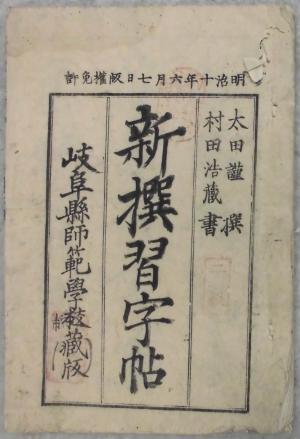 明治十年六月七日版權免許
太田謹 撰
村田浩藏 書
新撰習字帖
岐阜縣師範學校藏版